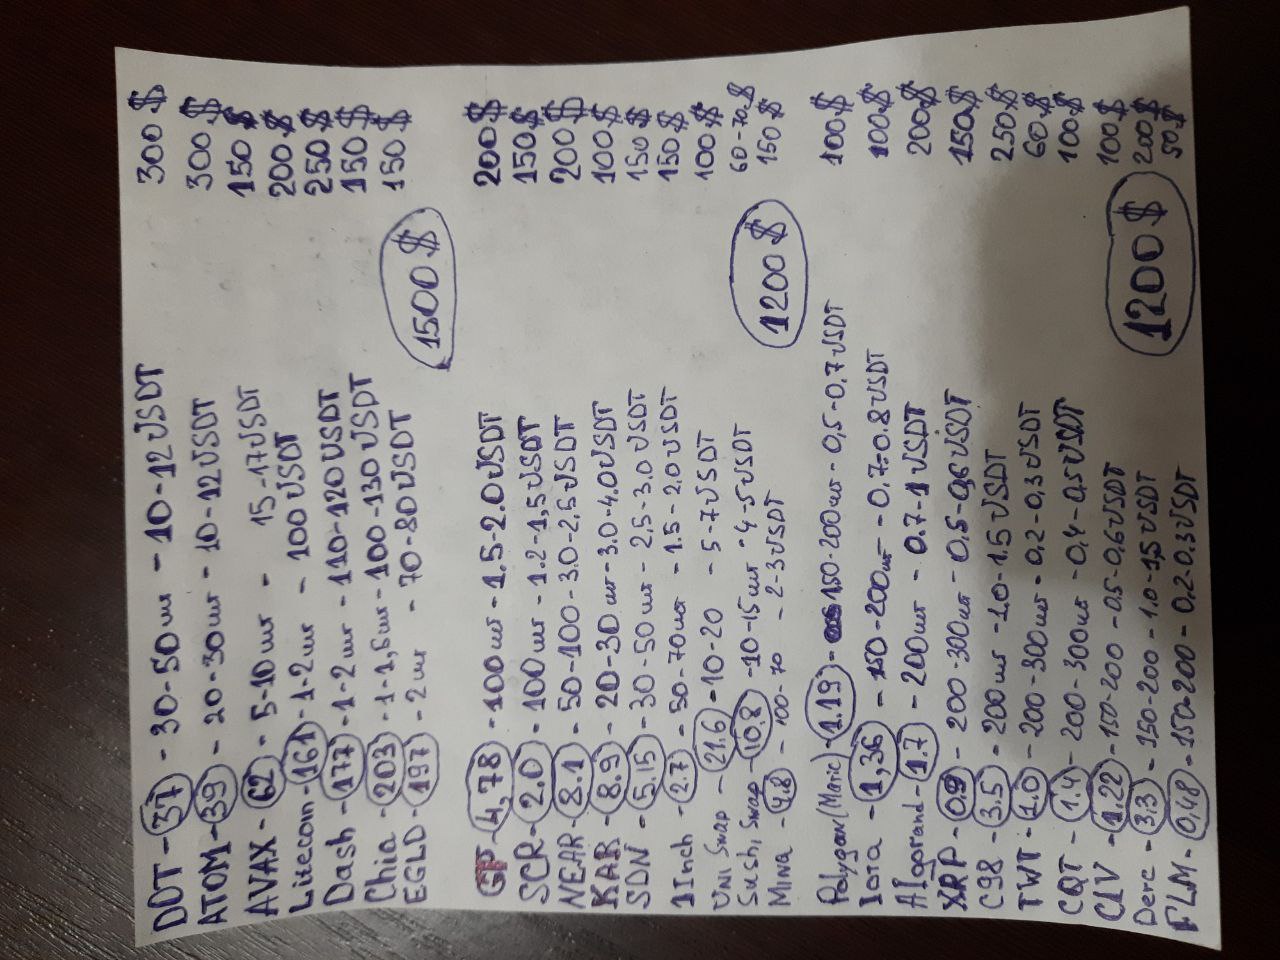 DOT - 37 - 30-50 шт - 10-12 USDT 300 $
ATOM - 39 - 20-30 шт - 10-12 USDT 300 $
AVAX - 62 - 5-10 шт - 15-17 USDT 150 $
Litecoin - 161 - 1-2 шт - 100 USDT 200 $
Dash - 177 - 1-2 шт - 110-120 USDT 250 $
Chia - 203 - 1-1,5 шт - 100-130 USDT 150 $
EGLD - 197 - 2 шт - 70-80 USDT 150 $
1500 $
4,78 - 100 шт - 1.5-2.0 USDT 200 $
SCR - 2.0 - 100 шт - 1.2-1,5 USDT 150 $
NEAR - 8.1 - 50-100 - 3.0-2,5 USDT 200 $
KAR - 8.9 - 20-30 шт - 3.0-4.0 USDT 100 $
SDN - 5.15 - 30-50 шт - 2,5-3.0 USDT 150 $
1Inch - 2.7 - 50-70 шт - 1.5-2.0 USDT 150 $
Uni Swap - 21.6 - 10-20 - 5-7 USDT 100 $
Sushi Swap - 10.8 - 10-15 шт - 4-5 USDT 60-70 $
Mina - 4.8 - 100-70 - 2-3 USDT 150 $
1200 $
Polygon (Matic) - 1.19 - 150-200 шт - 0,5-0,7 USDT 100 $
Iota - 1,36 - 150-200 шт - 0,7-0.8 USDT 100 $
Algorand - 1.7 - 200 шт - 0.7-1 USDT 200 $
XRP - 0.9 - 200-300 шт - 0,5-0,6 USDT 150 $
C98 - 3.5 - 200 шт - 1.0-1.5 USDT 250 $
TWT - 1.0 - 200-300 шт - 0,2-0,3 USDT 60 $
CQT - 1.4 - 200-300 шт - 0,4-0,5 USDT 100 $
CLV - 1.22 - 150-200 - 0.5-0,6 USDT 100 $
Derc - 3.3 - 150-200 - 1.0-1,5 USDT 200 $
FLM - 0,48 - 150-200 - 0.2-0.3 USDT 50 $
1200 $